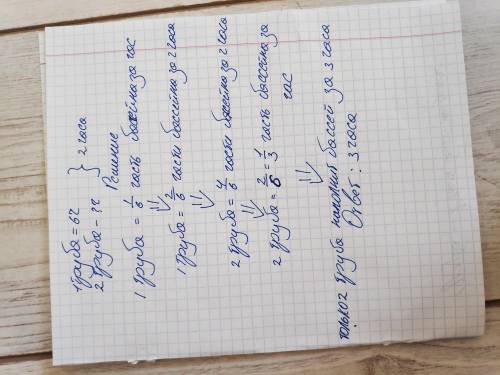 1 труба = 6ч
2 труба = ?ч } 2 часа
Решение
1 труба = 1/6 часть бассейна за час
⇓
1 труба = 2/6 части бассейна за 2 часа
⇓
2 труба = 4/6 части бассейна за 2 часа
⇓
2 труба = 2/6 = 1/3 часть бассейна за
час
⇓
только 2 труба наполнит бассей за 3 часа
Ответ: 3 часа